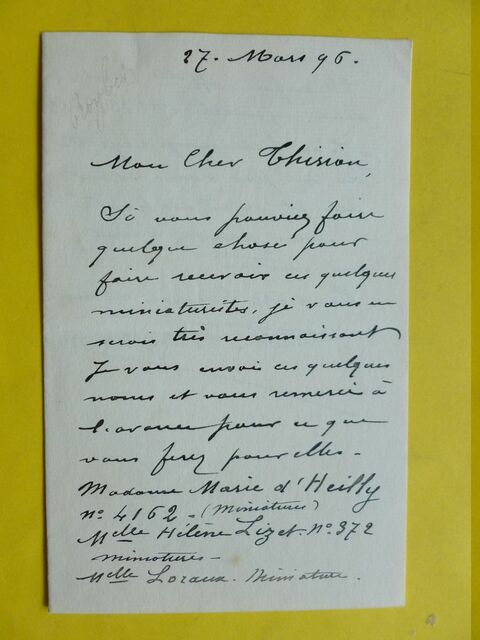 27. Mars 96.
Mon Cher Thirion,
Si vous pouviez faire
quelque chose pour
faire recevoir ces quelques
miniaturistes, je vous en
serois très reconnaissant
Je vous envois ces quelques
noms et vous remercie à
l'avance pour ce que
vous ferez pour elles -
Madame Marie d'Heilly
nº 4162 - (Miniature)
Melle Hélène Lizet. Nº 372
miniatures -
Melle Loraux. Miniature.